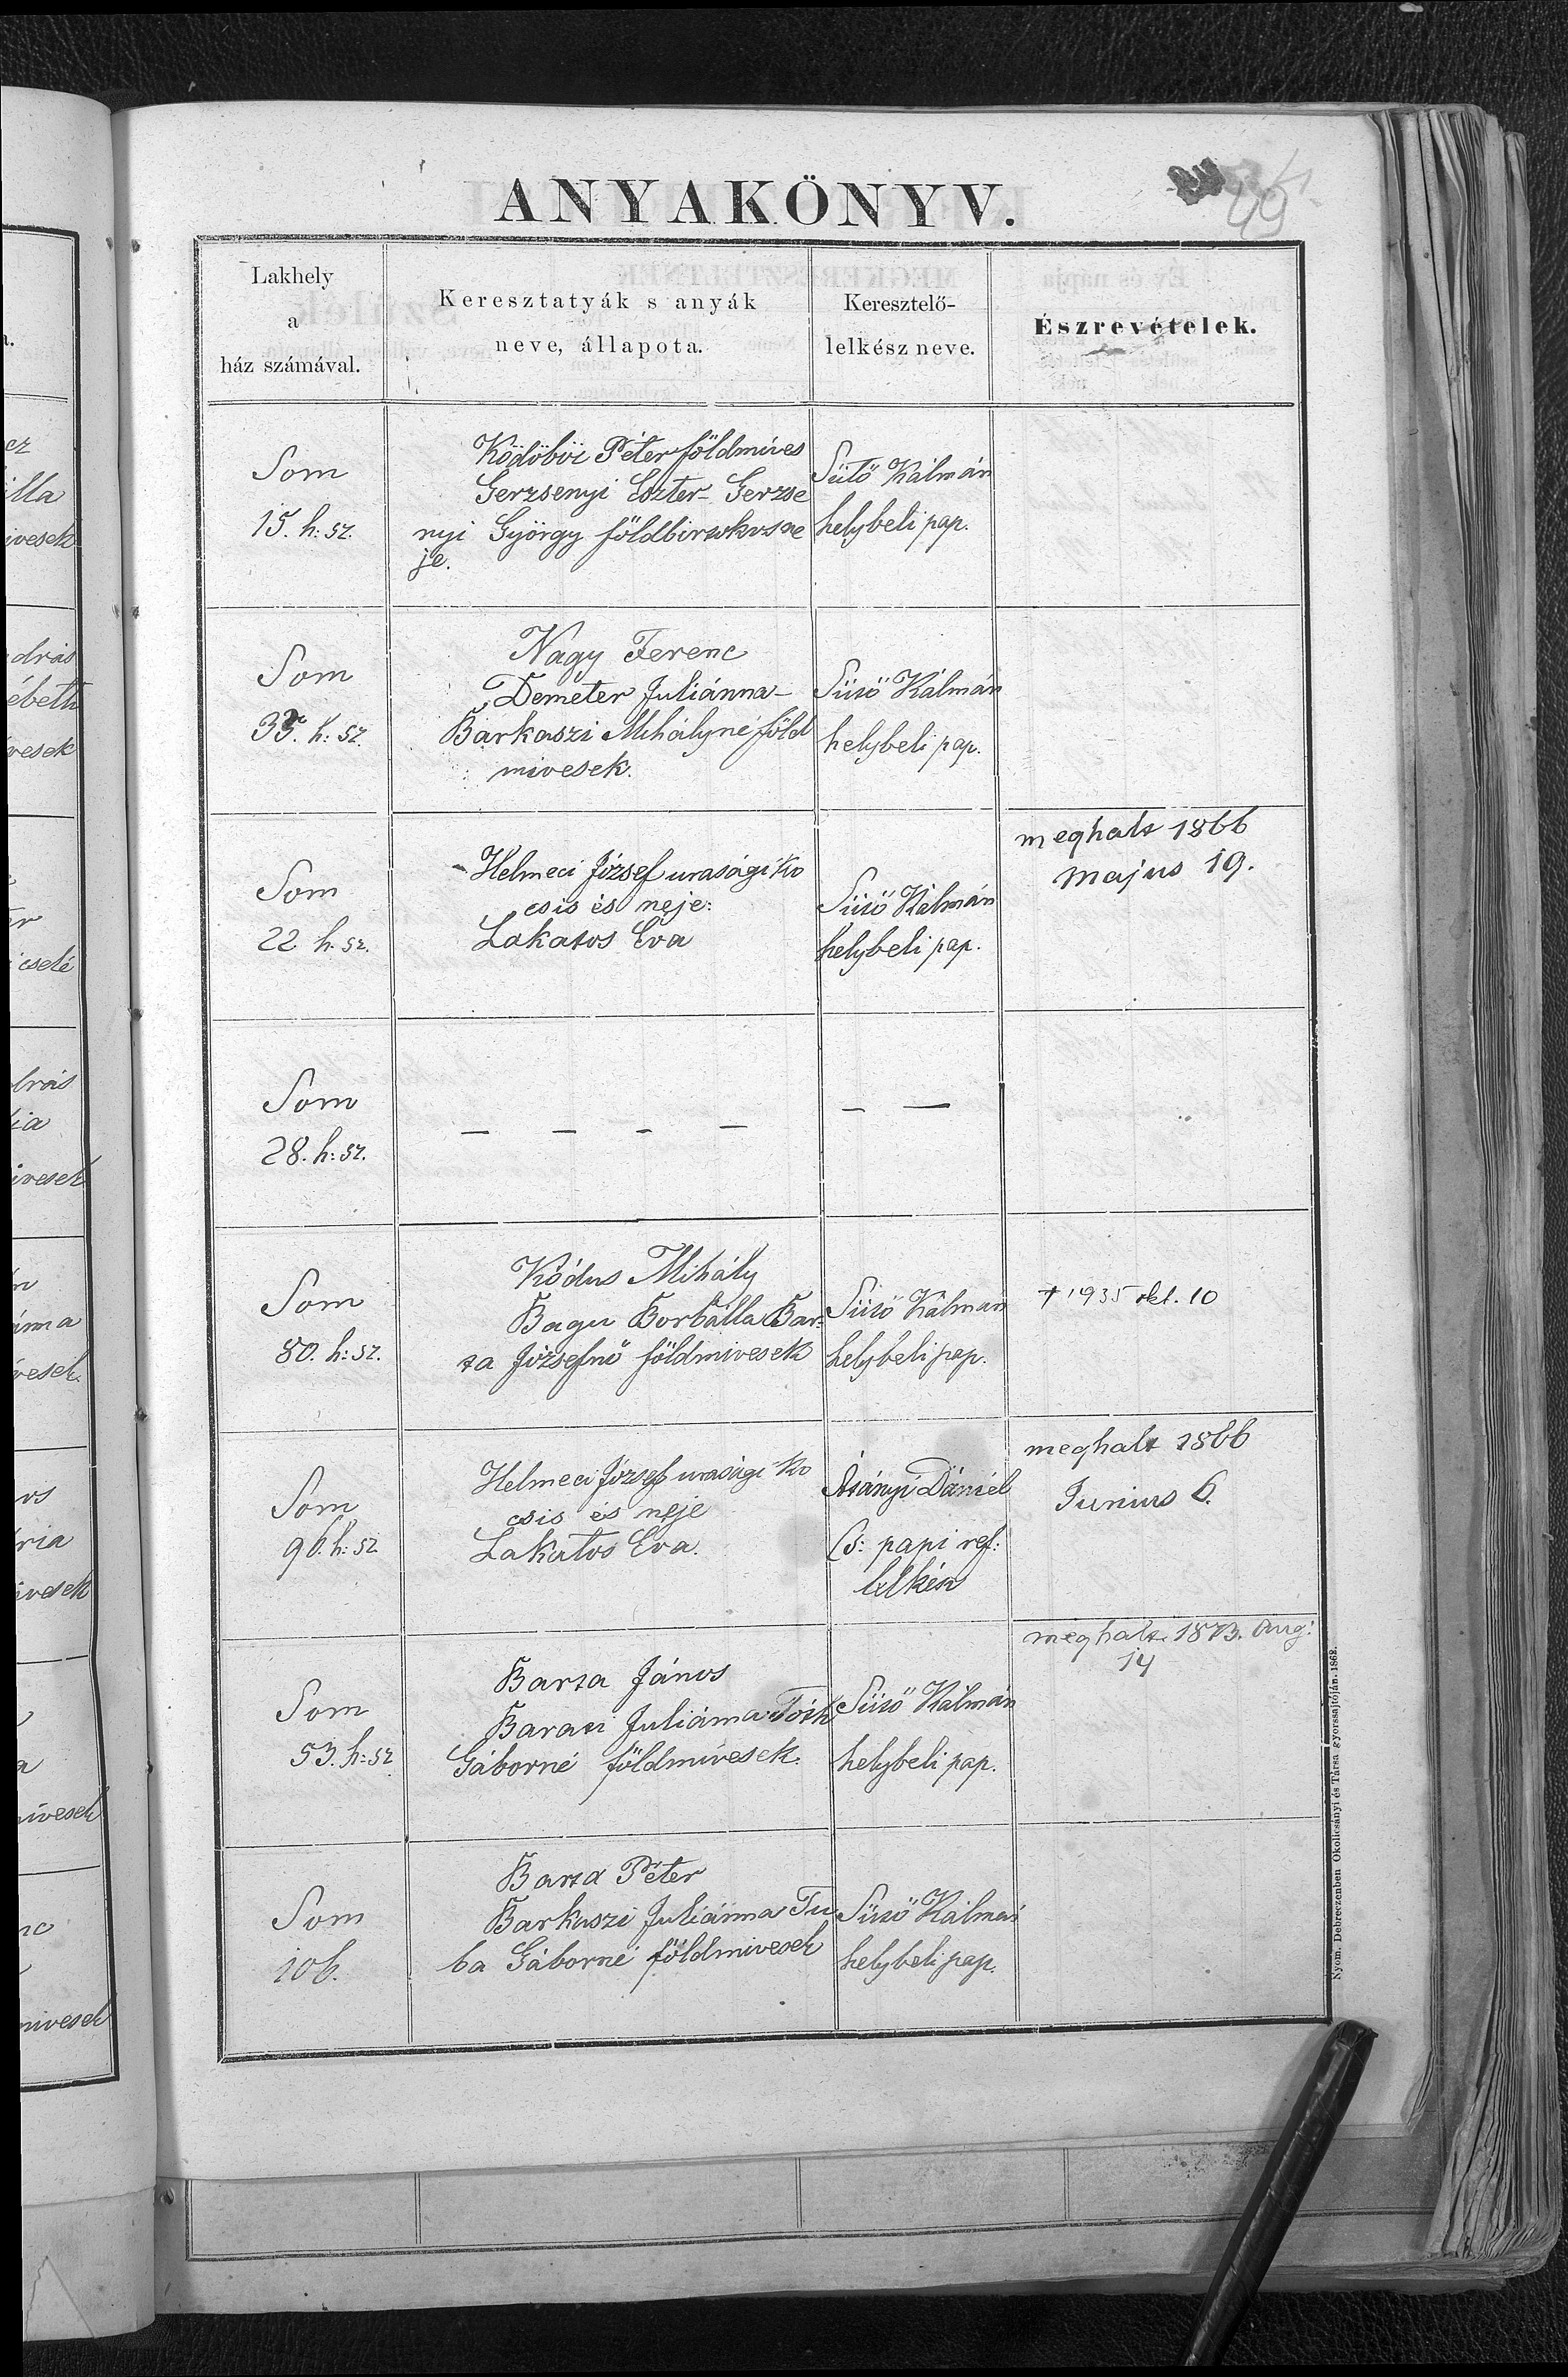 ANYAKÖNYV.
49
Lakhely
a
ház számával.
Keresztatyák s anyák
neve, állapota.
Keresztelő-
lelkész neve.
Észrevételek.
Som
15. h: sz.
Ködöböi Péter földmíves
Gerzsenyi Eszter- Gerzse
nyi György földbirtokos ne
je.
Sütő Kálmán
helybeli pap.
Som
35. h: sz.
Nagy Ferenc
Demeter Juliánna-
Barkaszi Mihályné föld
mivesek.
Sütő Kálmán
helybeli pap.
Som
22 h. sz.
Helmeci József urasági ko
csis és neje:
Lakatos Éva
Sütő Kálmán
helybeli pap.
meghalt 1866
majus 19.
Som
28. h: sz.
— — — —
— —
Som
80. h: sz.
Kódus Mihály
Bagu Borbálla Bar-
ta Józsefnő földmivesek
Sütő Kálmán
helybeli pap.
† 1935 okt. 10
Som
96. h: sz
Helmeci József urasági ko
csis és neje
Lakatos Eva.
Dániel
Cs: papi ref:
lelkész
meghalt 1866
Junius 6.
Som
53. h: sz
Barta János
Juliánna Tóth
Gáborné földmívesek.
Sütő Kálmán
helybeli pap.
meghalt 1873. Aug:
14
Som
106.
Barta Péter
Barkaszi Juliánna Tu
ba Gáborné földmivesek
Sütő Kálmán
helybeli pap.
Nyom. Debreczenben Okolicsányi és Társa gyorssajtóján. 1862.